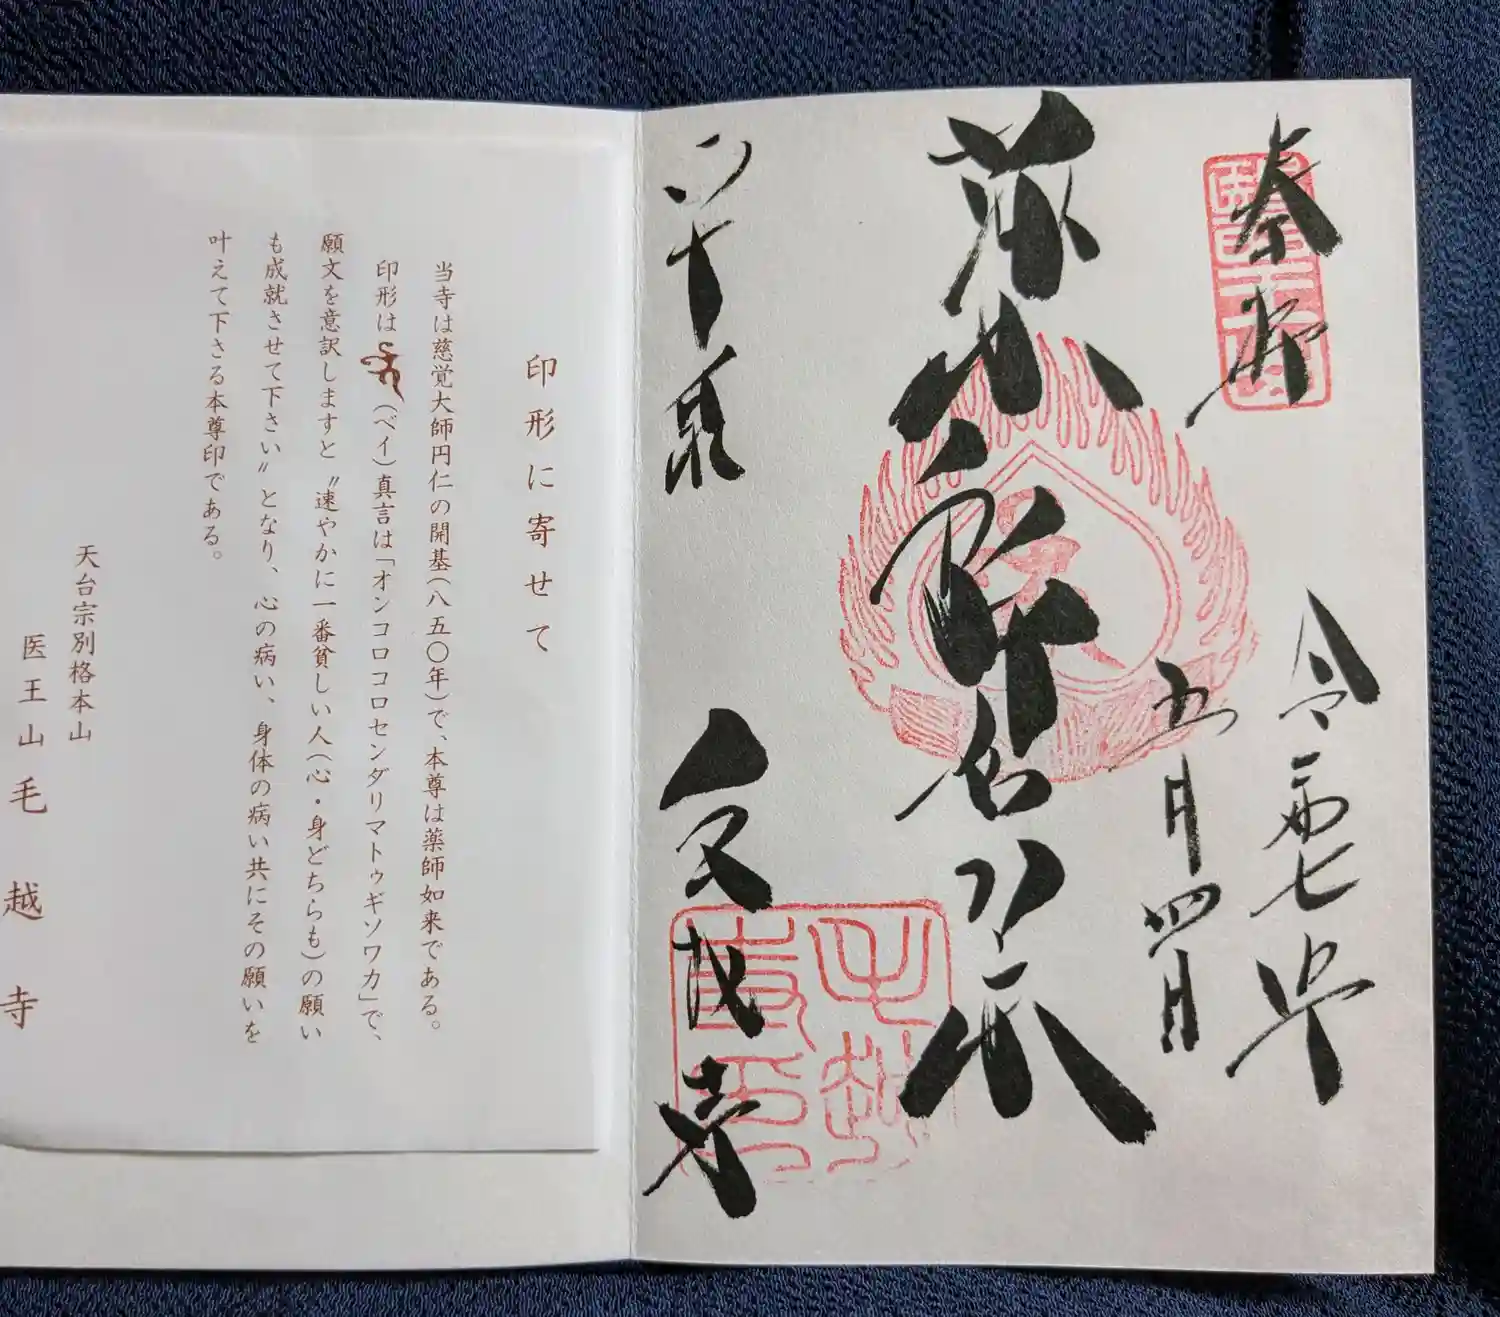 奉拝
醫王山
令和七年
五月四日
薬師如来
平泉
毛越寺
毛越
寺印
印形に寄せて
当寺は慈覚大師円仁の開基(八五〇年)で、本尊は薬師如来である。
印形は(ベイ)真言は「オンコロコロセンダリマトゥギソワカ」で、
願文を意訳しますと〝速やかに一番貧しい人(心・身どちらも)の願い
も成就させて下さい〟となり、心の病い、身体の病い共にその願いを
叶えて下さる本尊印である。
天台宗別格本山
医王山毛越寺